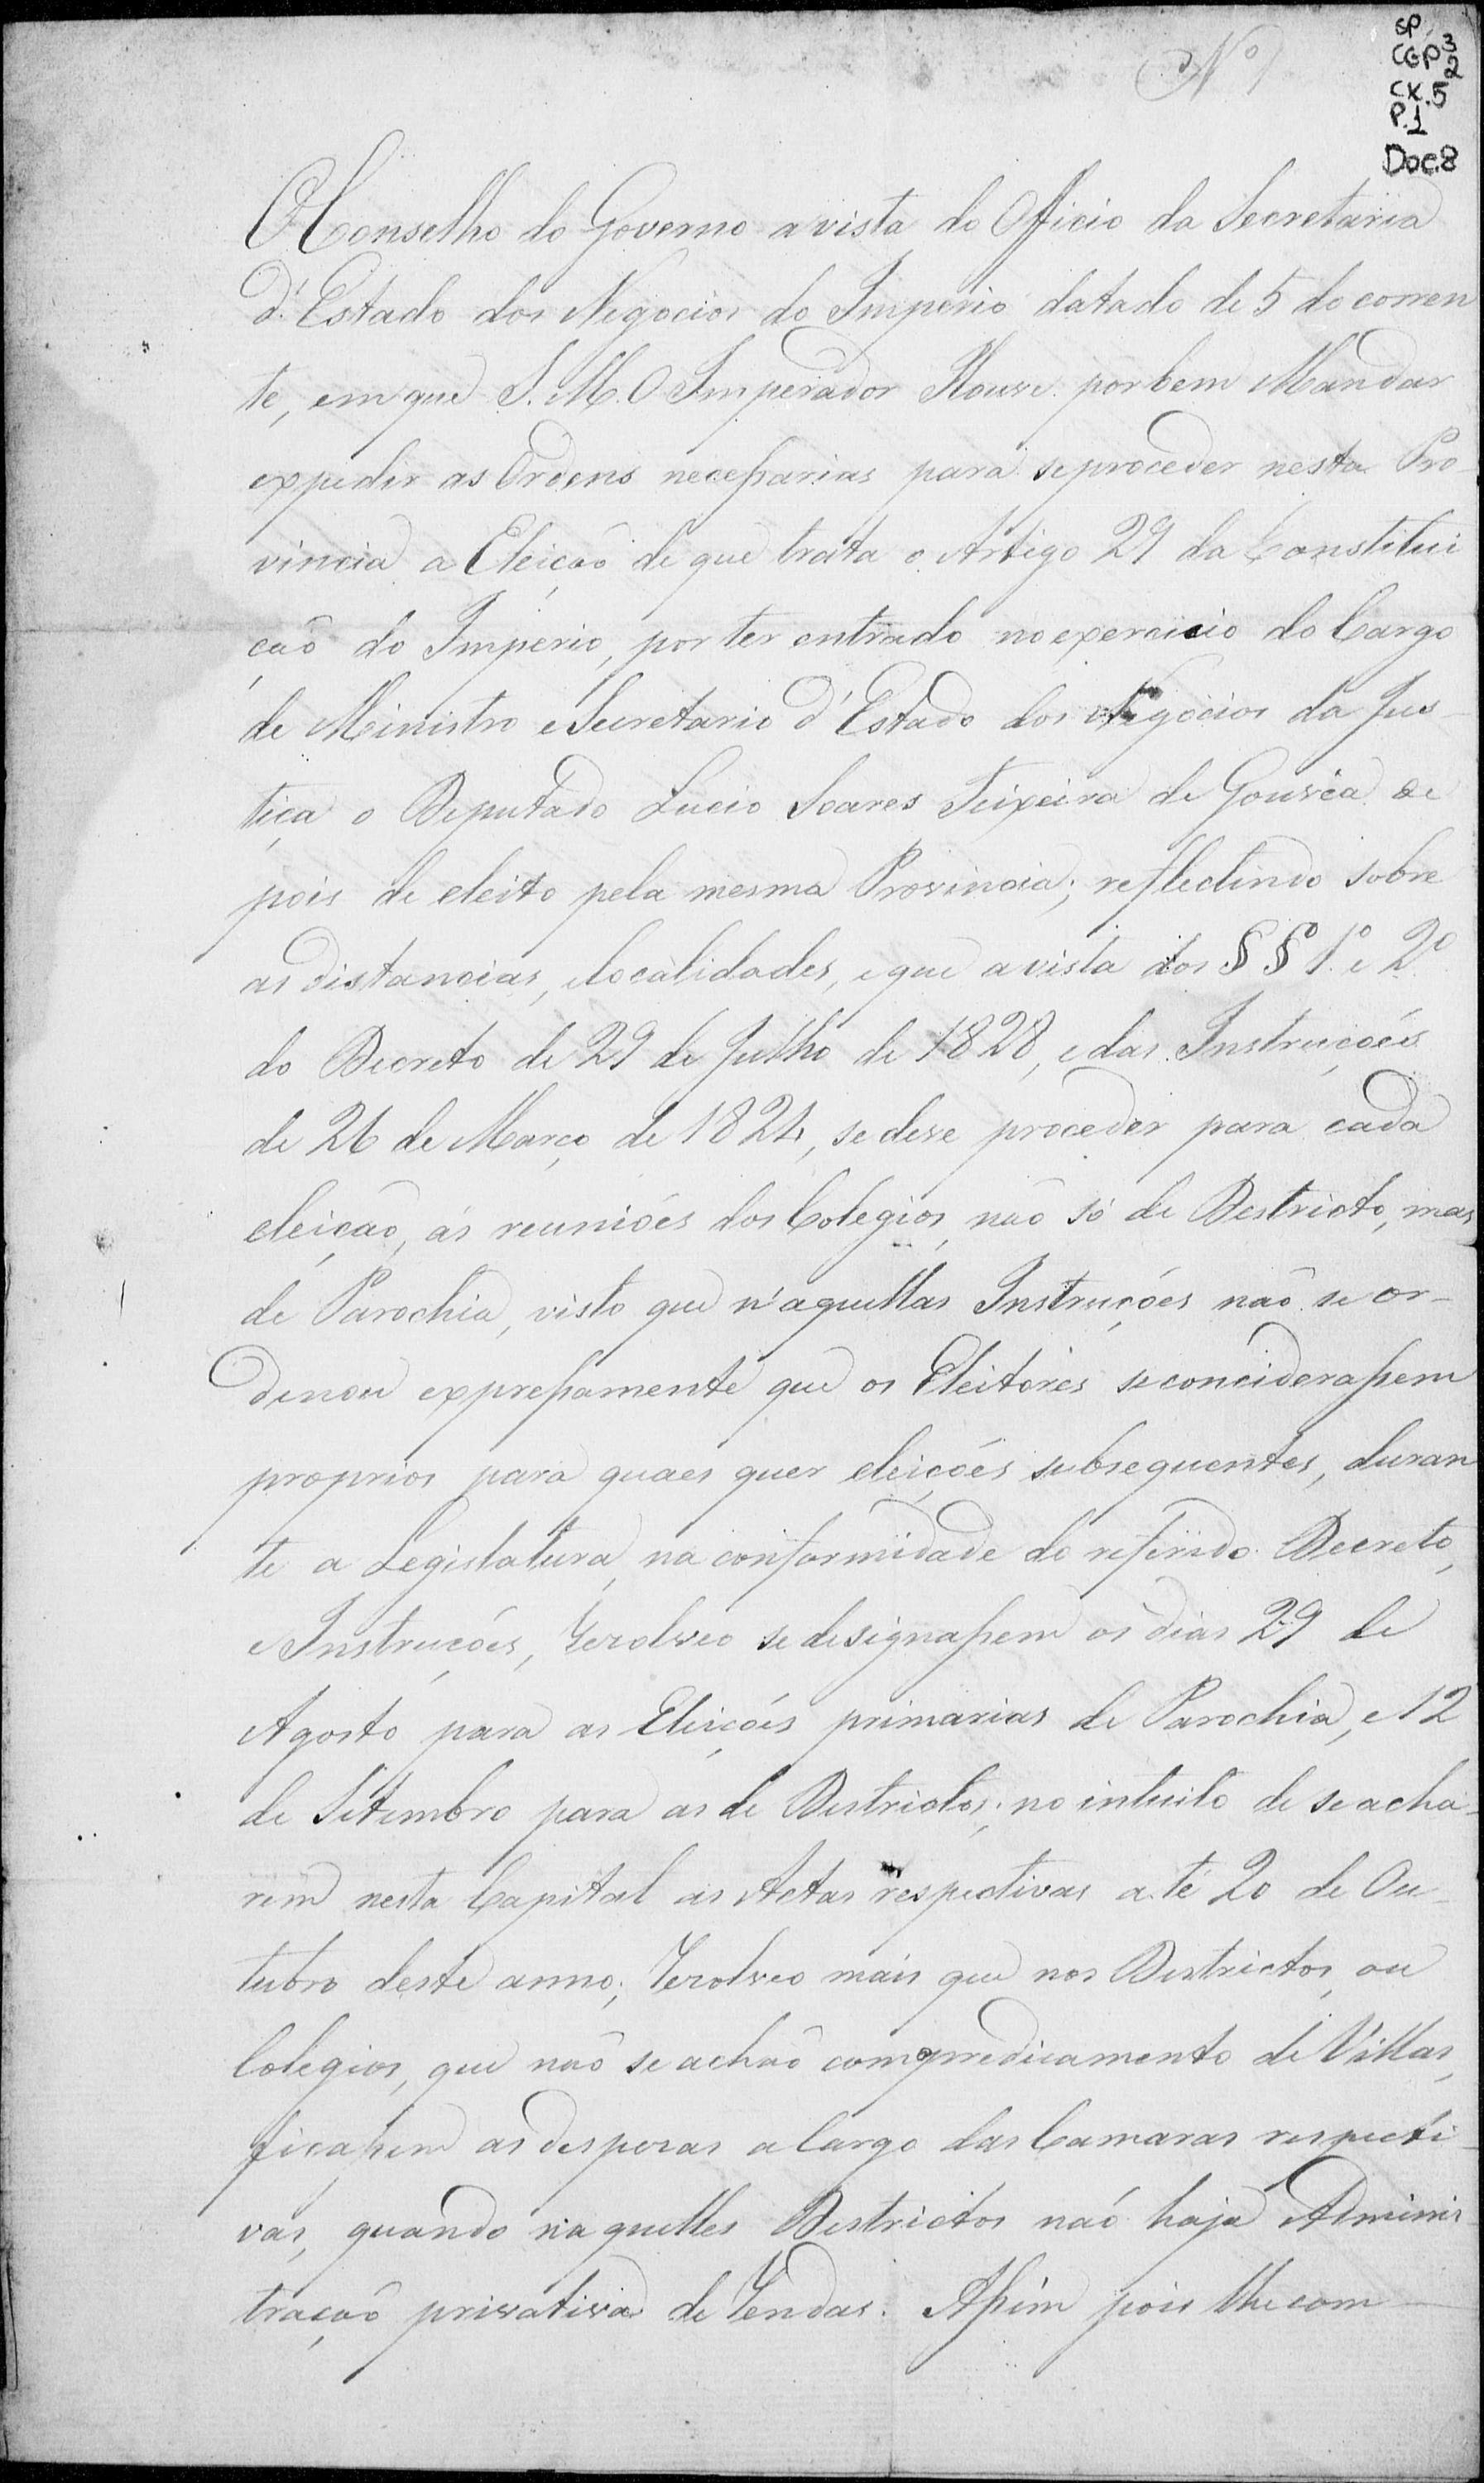 Nº
SP
CGP 3
2
CX.5
P.1
Doc.8
O Conselho do Governo a vista do Officio da Secretaria
d'Estado dos Negocios do Imperio datado de 5 do corren
te, em que S. M. O Imperador Houve por bem Mandar
expedir as Ordens necessarias para se proceder nesta Pro
vincia a Eleição de que trata o Artigo 29 da Constitui
ção do Imperio, por ter entrado no exercicio do Cargo
de Ministro e Secretario d'Estado dos Negocios da Jus
tiça o Deputado Lucio Soares Teixeira de Gouvêa de
pois de eleito pela mesma Provincia; reflectindo sobre
as distancias, e localidades, e que a vista dos §§ 1º e 2º
do Decreto de 29 de Julho de 1828, e das Instrucções
de 26 de Março de 1824, se deve proceder para cada
eleição, ás reuniões dos Colegios, não só de Destricto, mas
de Parochia, visto que n'aquellas Instruções não se or-
denou expressamente que os Eleitores se conciderassem
proprios para quaes quer eleições subsequentes, duran
te a Legislatura, na conformidade do referido Decreto,
e Instruções, Rezolveo se designassem os dias 29 de
Agosto para as Eleições primarias de Parochia, e 12
de Setembro para as de Destrictos; no intuito de se acha-
rem nesta Capital as Actas respectivas até 20 de Ou-
tubro deste anno; Rezolveo mais que nos Destrictos, ou
Colegios, que não se achão com o predicamento de Villas,
ficassem as despezas a Cargo das Camaras respecti-
vas, quando n'aquelles Destrictos não haja Adminis-
tração privativa de Rendas. Assim pois lhe com-